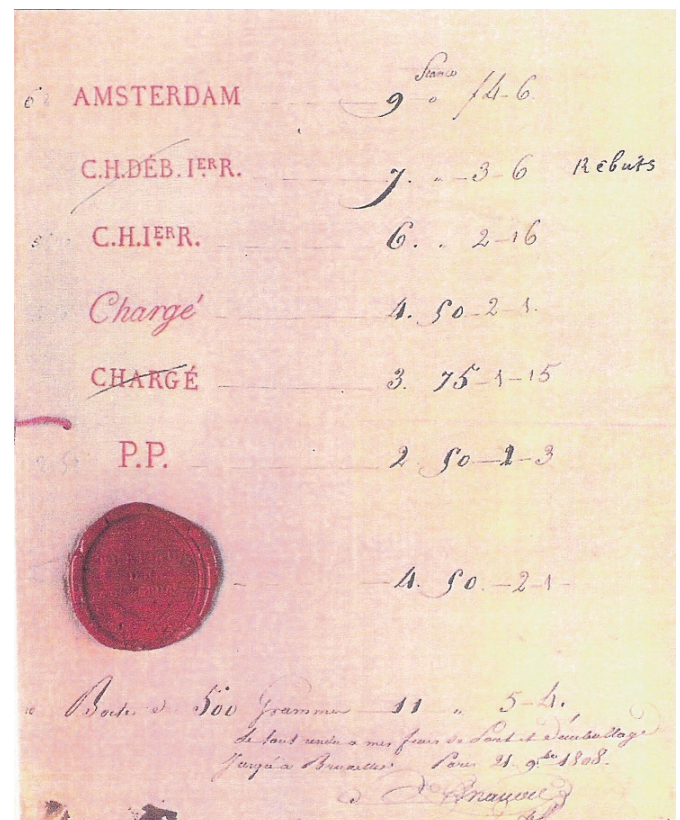 6 AMSTERDAM 9 francs " f 4-6
C.H.DÉB.IER R. 7. " 3-6 Rebuts
C.H.IER R. 6. " 2-16
Chargé 4. 50 2-1.
CHARGÉ 3. 75-1-15
P.P. 2 50-1-3
4. 50.-2-1-
500 Grammes 11 " 5-4.
le tout rendu a mes frais de Port et d'emballage
Jusqu'a Bruxelles Paris 21. 9bre 1808.